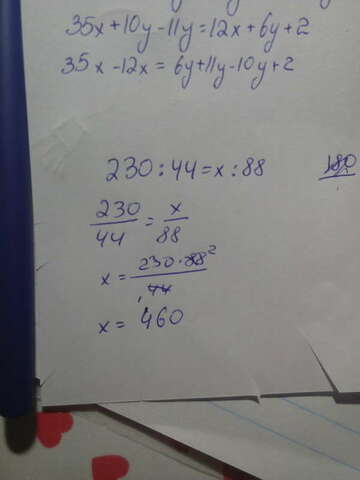 35x+10y-11y=12x+6y+2
35x-12x=6y+11y-10y+2
230:44=x:88
180
230/44=x/88
x=230·88²/44
x=460